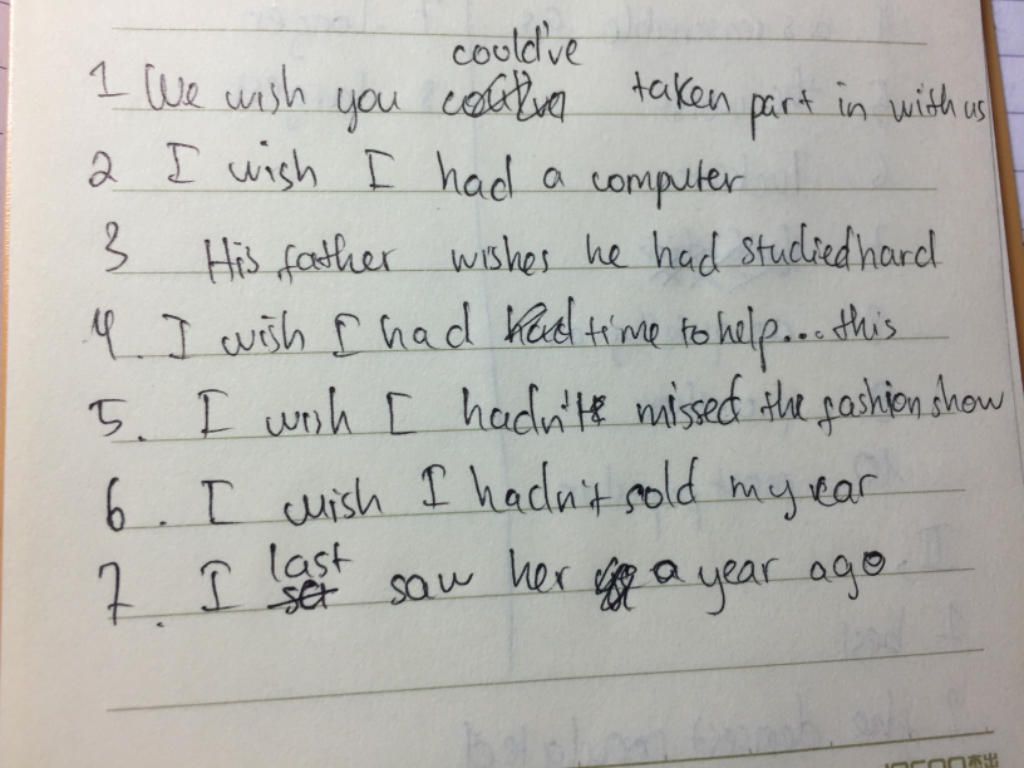 could've
1 We wish you taken part in with us
2 I wish I had a computer
3 His father wishes he had studied hard
4. I wish I had had time to help... this
5. I wish I hadn't missed the fashion show
6. I wish I hadn't sold my car
last
7. I saw her a year ago